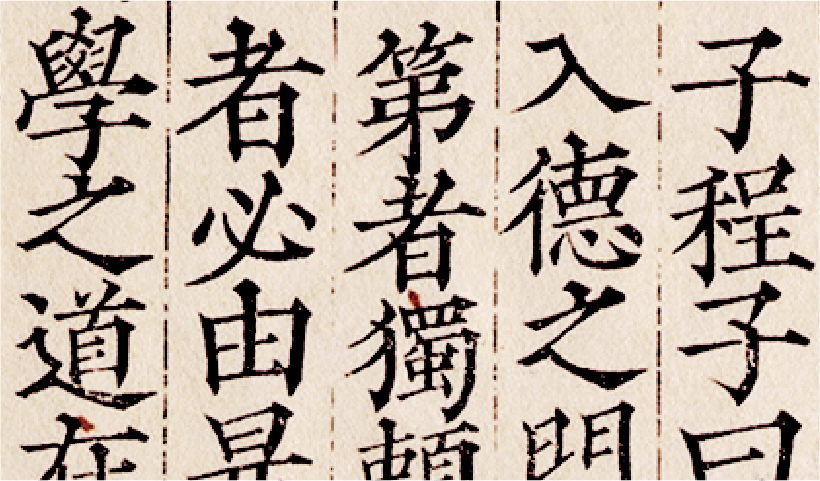 子程子曰
入德之門
第者獨頼
者必由是
學之道在